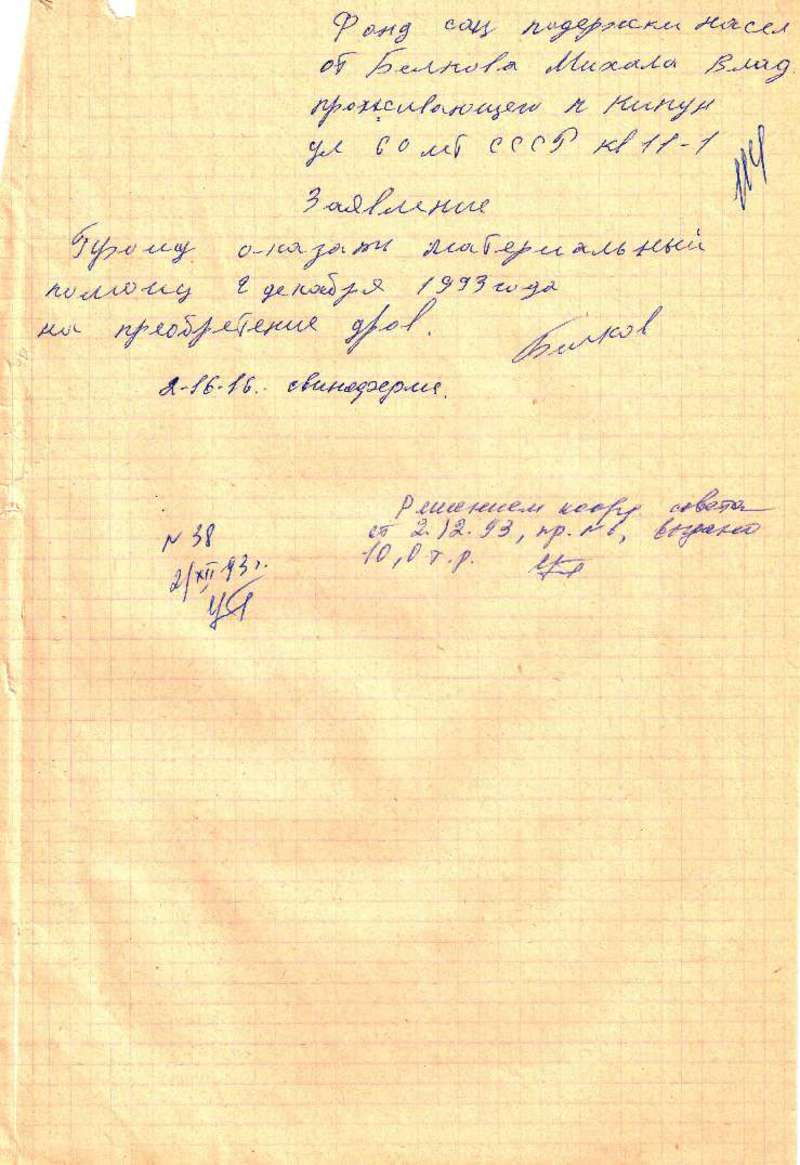 Фонд соц подержки насел
от Белкова Михала Влад.
проживающего п Кипун
ул 60 лет СССР кв 11-1
114
Заявление
Прошу оказать материальный
помощ 2 декабря 1993 года
на преобретение дров.
Белков
2-16-16. свиноферма.
Решением коорд совета
от 2.12.93, пр. №6, выдано
10,0 т.р.
N 38
2/XII-93 г.